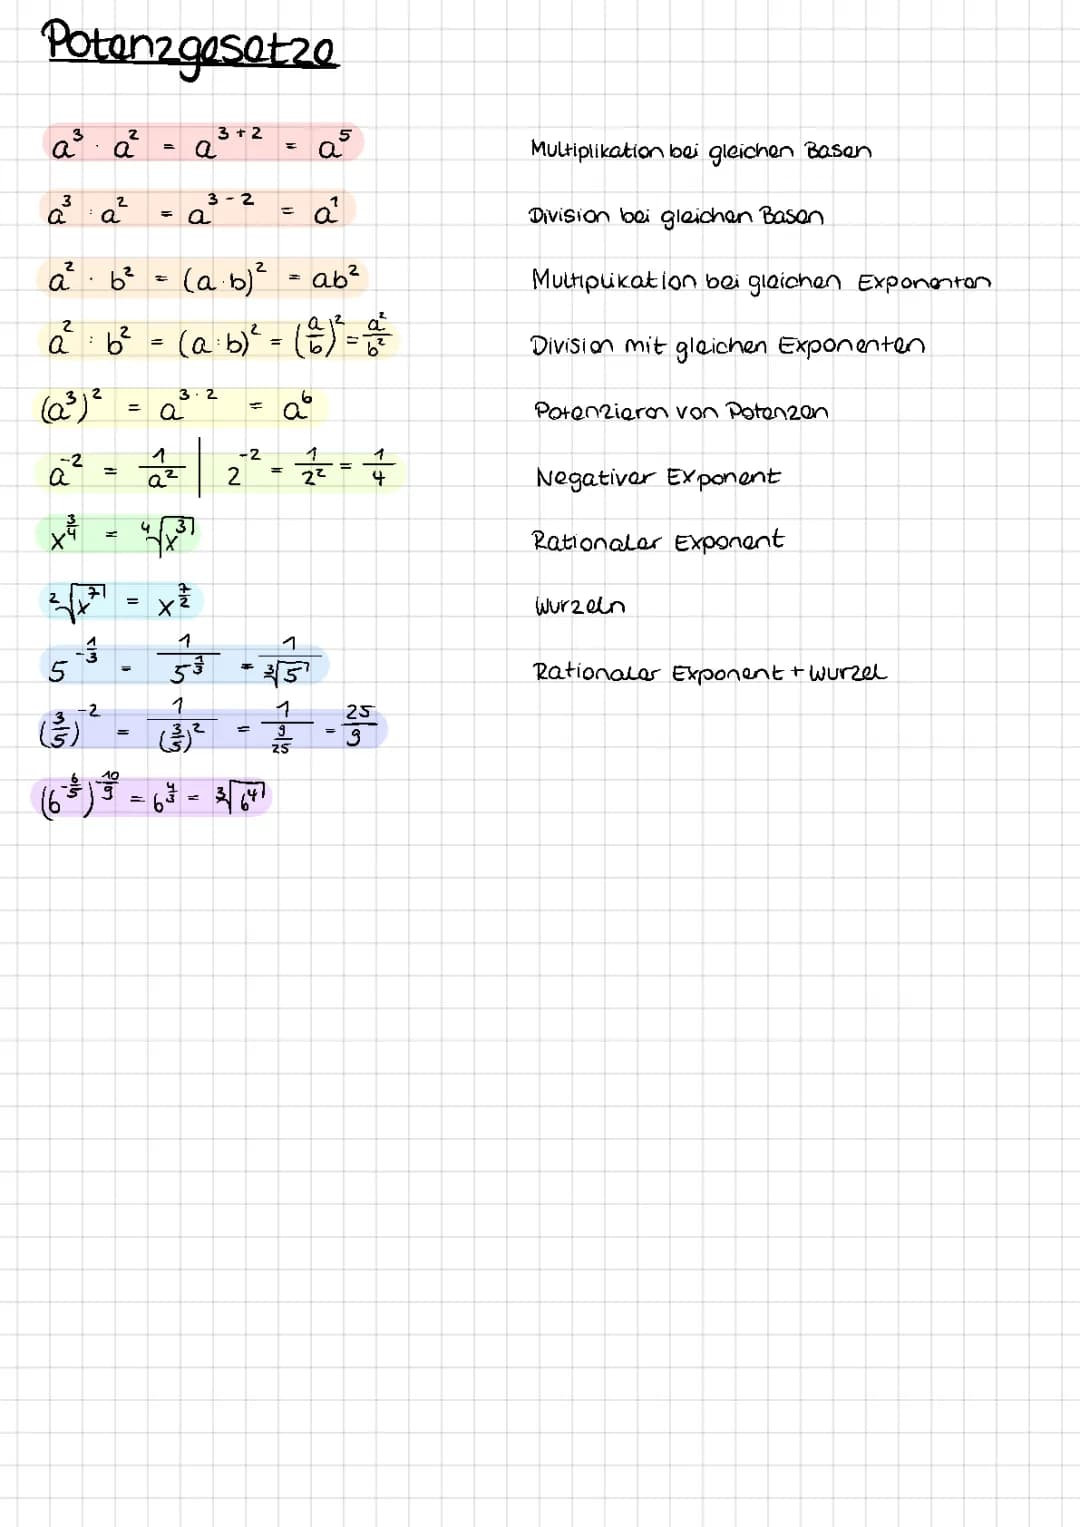 Potenzgesetze
a³ · a² = a³⁺² = a⁵ Multiplikation bei gleichen Basen
a³ : a² = a³⁻² = a¹ Division bei gleichen Basen
a² · b² = (a·b)² = ab² Multiplikation bei gleichen Exponenten
a² : b² = (a:b)² = (a/b)² = a²/b² Division mit gleichen Exponenten
(a³)² = a^(3·2) = a⁶ Potenzieren von Potenzen
a⁻² = 1/a² | 2⁻² = 1/2² = 1/4 Negativer Exponent
x^(3/4) = ⁴√x³ Rationaler Exponent
²√x⁷ = x^(7/2) Wurzeln
5^(-1/3) = 1/5^(1/3) = 1/³√5 Rationaler Exponent + Wurzel
(3/5)⁻² = 1/(3/5)² = 1/(9/25) = 25/9
(6^(-6/5))^(-10/9) = 6^(4/3) = ³√6⁴